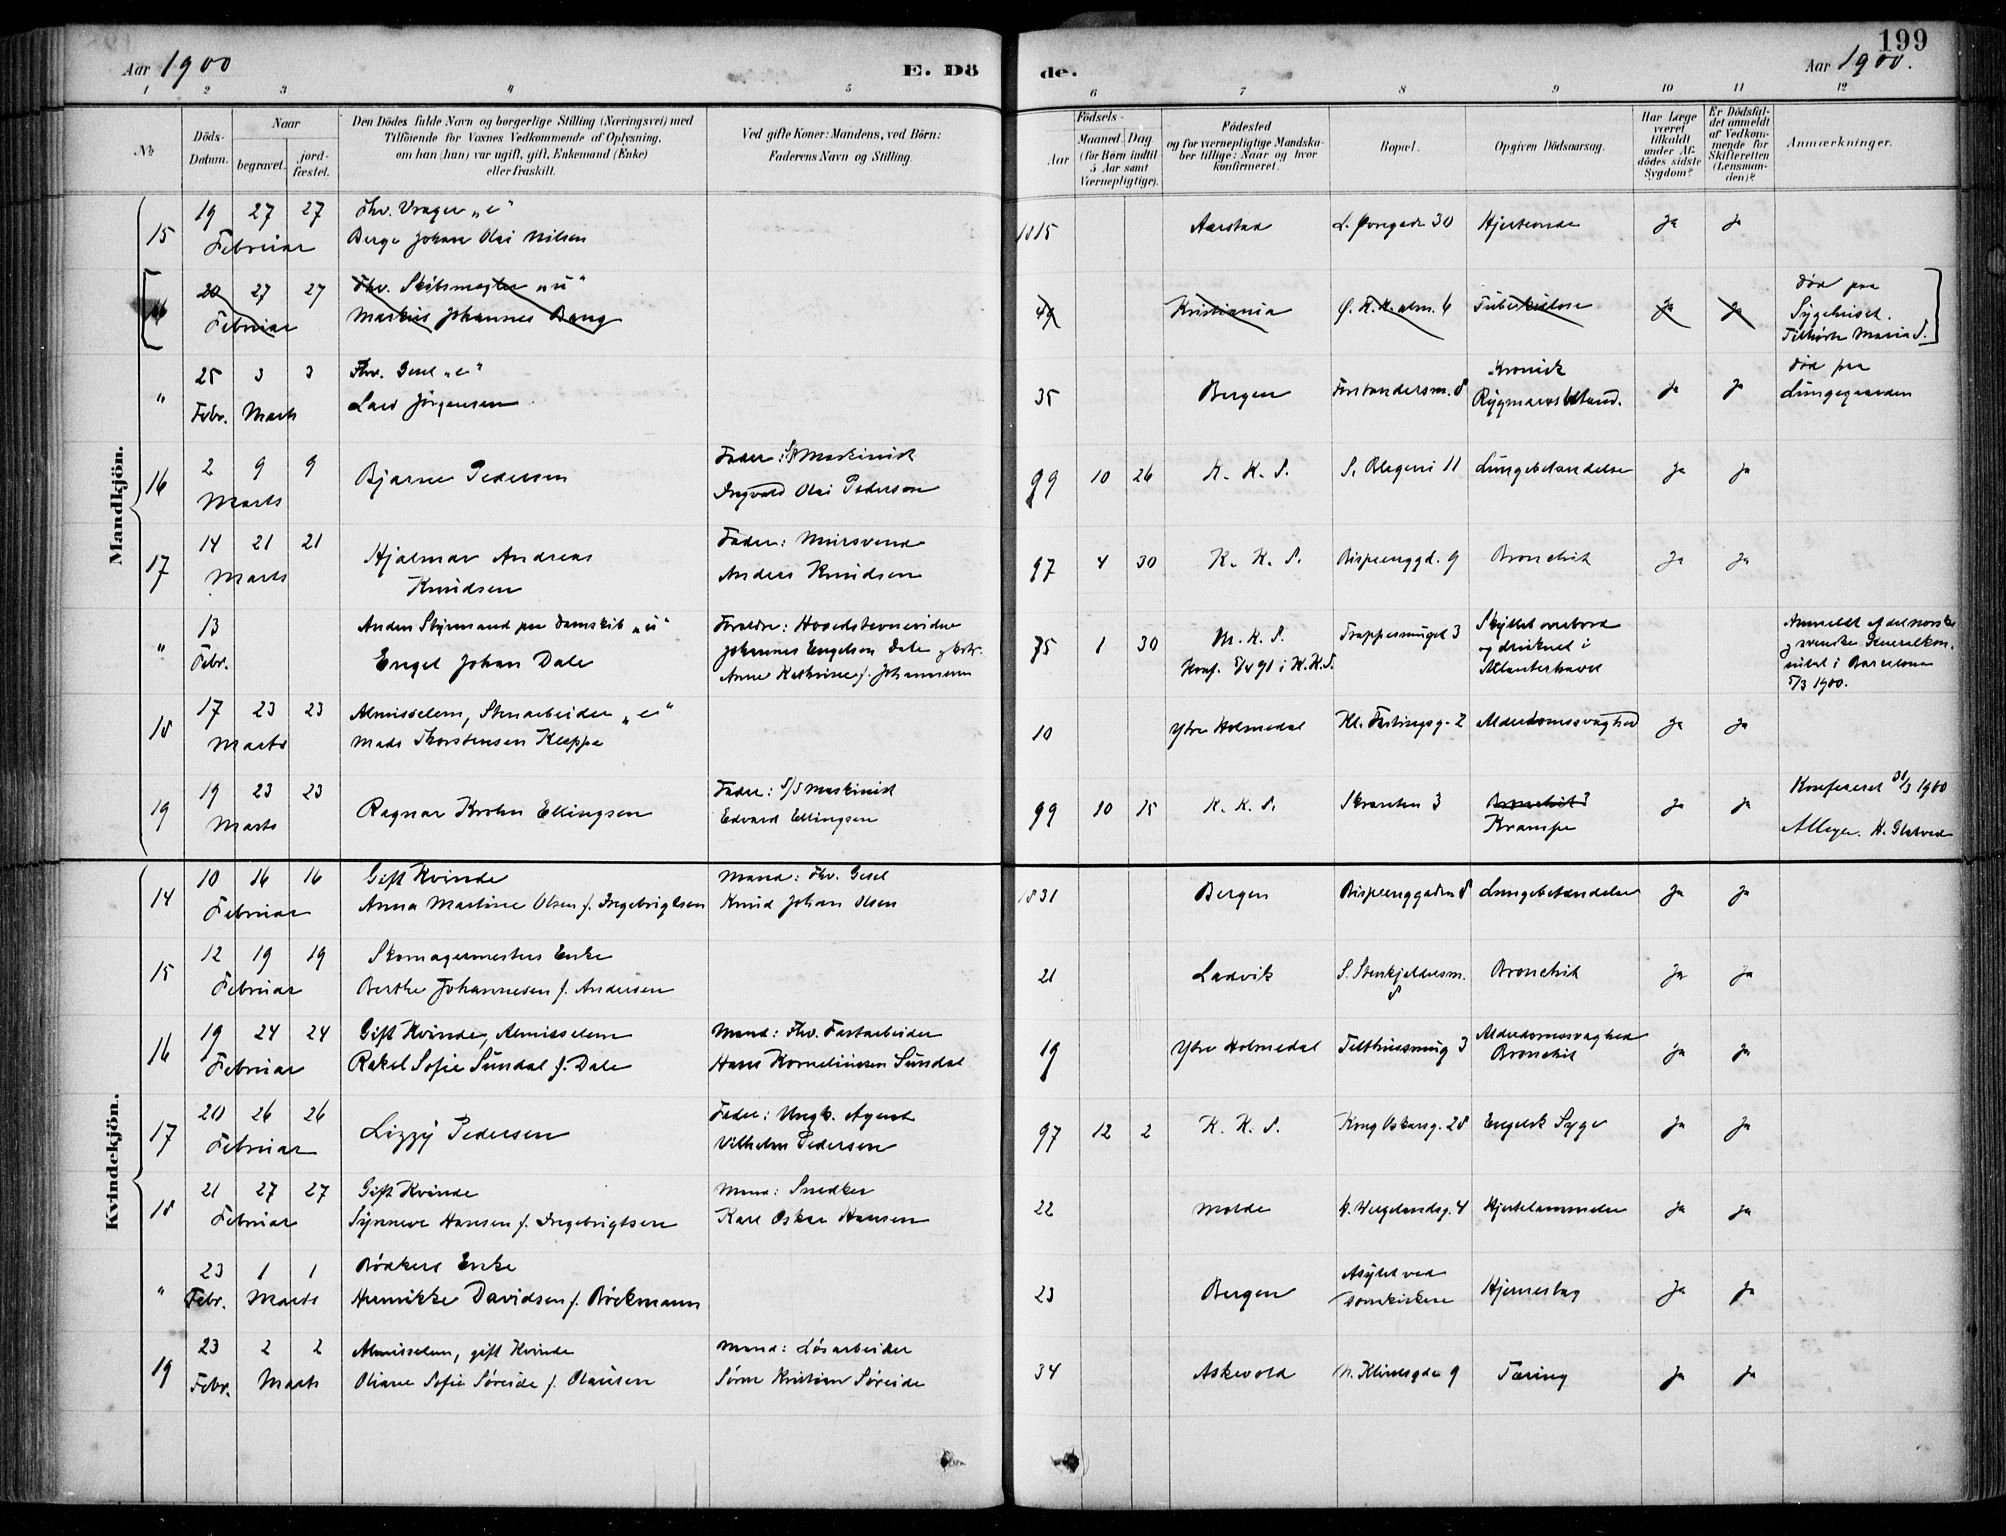 199
Aar 1900
E. Dö
de.
Aar 1900.
1 2 3 4 5 6 7 8 9 10 11 12
No
Döds-Datum.
Naar
begravet.
jord-fæstet.
Den Dödes fulde Navn og borgerlige Stilling (Næringsvei) med
Tilföiende for Voxnes Vedkommende af Oplysning,
om han (hun) var ugift, gift, Enkemand (Enke)
eller fraskilt.
Ved gifte Koner: Mandens, ved Börn:
Faderens Navn og Stilling.
Födsels-
Aar
Maaned. Dag.
(for Børn indtil
5 Aar samt
Værnepligtige).
Födested
og for værnepligtige Mandska-
ber tillige: Naar og hvor
konfirmeret.
Bopæl.
Opgiven Dödsaarsag.
Har Læge
været
tilkaldt
under Af-
dödes sidste
Sygdom?
Er Dödsfal-
det anmeldt
af Vedkom-
mende for
Skifteretten
(Lensman-
den)?
Anmærkninger.
Mandkjön.
15 19 27 27 Februar
Fhv. Vrager "e"
Berge Johan Olai Nilsen
1815 Aarstad L. Øvregade 30 Hjerteonde Ja Ja
16 20 27 27 Februar
Fhv. Skibsmægler "u"
Markus Johannes Bang
44 Kristiania Ø. K. K. alm. 6 Tuberkulose Ja Ja
Død paa
Sygehuset.
Tilhører Maria S.
" 25 3 3 Febr. Marts
Fhv. Gesel "e"
Lars Jörgensen
35 Bergen Forstandersm. 8
Kronisk
Rygmarvsbetænd.
Ja Ja
Død paa
Lungegaarden
16 2 9 9 Marts
Bjarne Pedersen
Fader: S/S Maskinist
Ingvald Olai Pedersen
99 10 26 K. K. S. S. Blegevei 11 Lungebetændelse Ja Ja
17 14 21 21 Marts
Hjalmar Andreas
Knudsen
Fader: Mursvend
Anders Knudsen
97 4 30 K. K. S. Bispeenggd. 9 Bronchit Ja Ja
" 13 Febr.
Anden Styrmand paa Damskib "u"
Engel Johan Dale
Forældre: Hovedstevnevidne
Johannes Engelsen Dale og Hustr.
Anne Kathrine f. Johannesen
75 1 30 M. K. S.
Konf. 5/4 91 i K. K. S.
Trappesmuget 3
Skyllet overbord
og druknet i
Atlanterhavet
Anmeldt af det norske
og svenske Generalkon-
sulat i Barcelona
5/3 1900.
18 17 23 23 Marts
Almisselem, Stenarbeider "e"
Mads Thorstensen Kleppe
10 Ytre Holmedal Kl. Fortingsg. 2 Alderdomssvaghed Ja Ja
19 19 23 23 Marts
Ragnar Krohn Ellingsen
Fader: S/S Maskinist
Edvard Ellingsen
99 10 15 K. K. S. Skranten 3
Bronchit?
Krampe
Ja Ja
Konfereret 31/3 1900
Kvindekjön.
14 10 16 16 Februar
Gift Kvinde
Anna Martine Olsen f. Ingebrigtsen
Mand: Fhv. Gesel
Knud Johan Olsen
1831 Bergen Bispeenggaden 8 Lungebetændelse Ja Ja
15 12 19 19 Februar
Skomagermesters Enke
Berthe Johannesen f. Andersen
21 Ladvik S. Stenkjeldersm.
8
Bronchit Ja Ja
16 19 24 24 Februar
Gift Kvinde, Almisselem
Rakel Sofie Sundal f. Dale
Mand: Fhv. Fastarbeider
Hans Korneliussen Sundal
19 Ytre Holmedal Telthussmug 3
Alderdomssvaghed
Bronchit
Ja Ja
17 20 26 26 Februar
Lizzy Pedersen
Fader: Ungk. Agent
Vilhelm Pedersen
97 12 2 K. K. S. Kong Oskarsg. 28 Engelsk Syge Ja Ja
18 21 27 27 Februar
Gift Kvinde
Synneve Hansen f. Ingebrigtsen
Mand: Snedker
Karl Oskar Hansen
22 Molde H. Wergelandsg. 4 Hjertelammelse Ja Ja
" 23 1 1 Febr. Marts
Bødkers Enke
Henrikke Davidsen f. Böckmann
23 Bergen
Asylet ved
Domkirken
Hjerneslag Ja Ja
19 23 2 2 Febr. Marts
Almisselem, gift Kvinde
Oliane Sofie Søreide f. Olausen
Mand: Løsarbeider
Søren Kristian Søreide
34 Askevold N. Klinesgde 9 Tæring Ja Ja